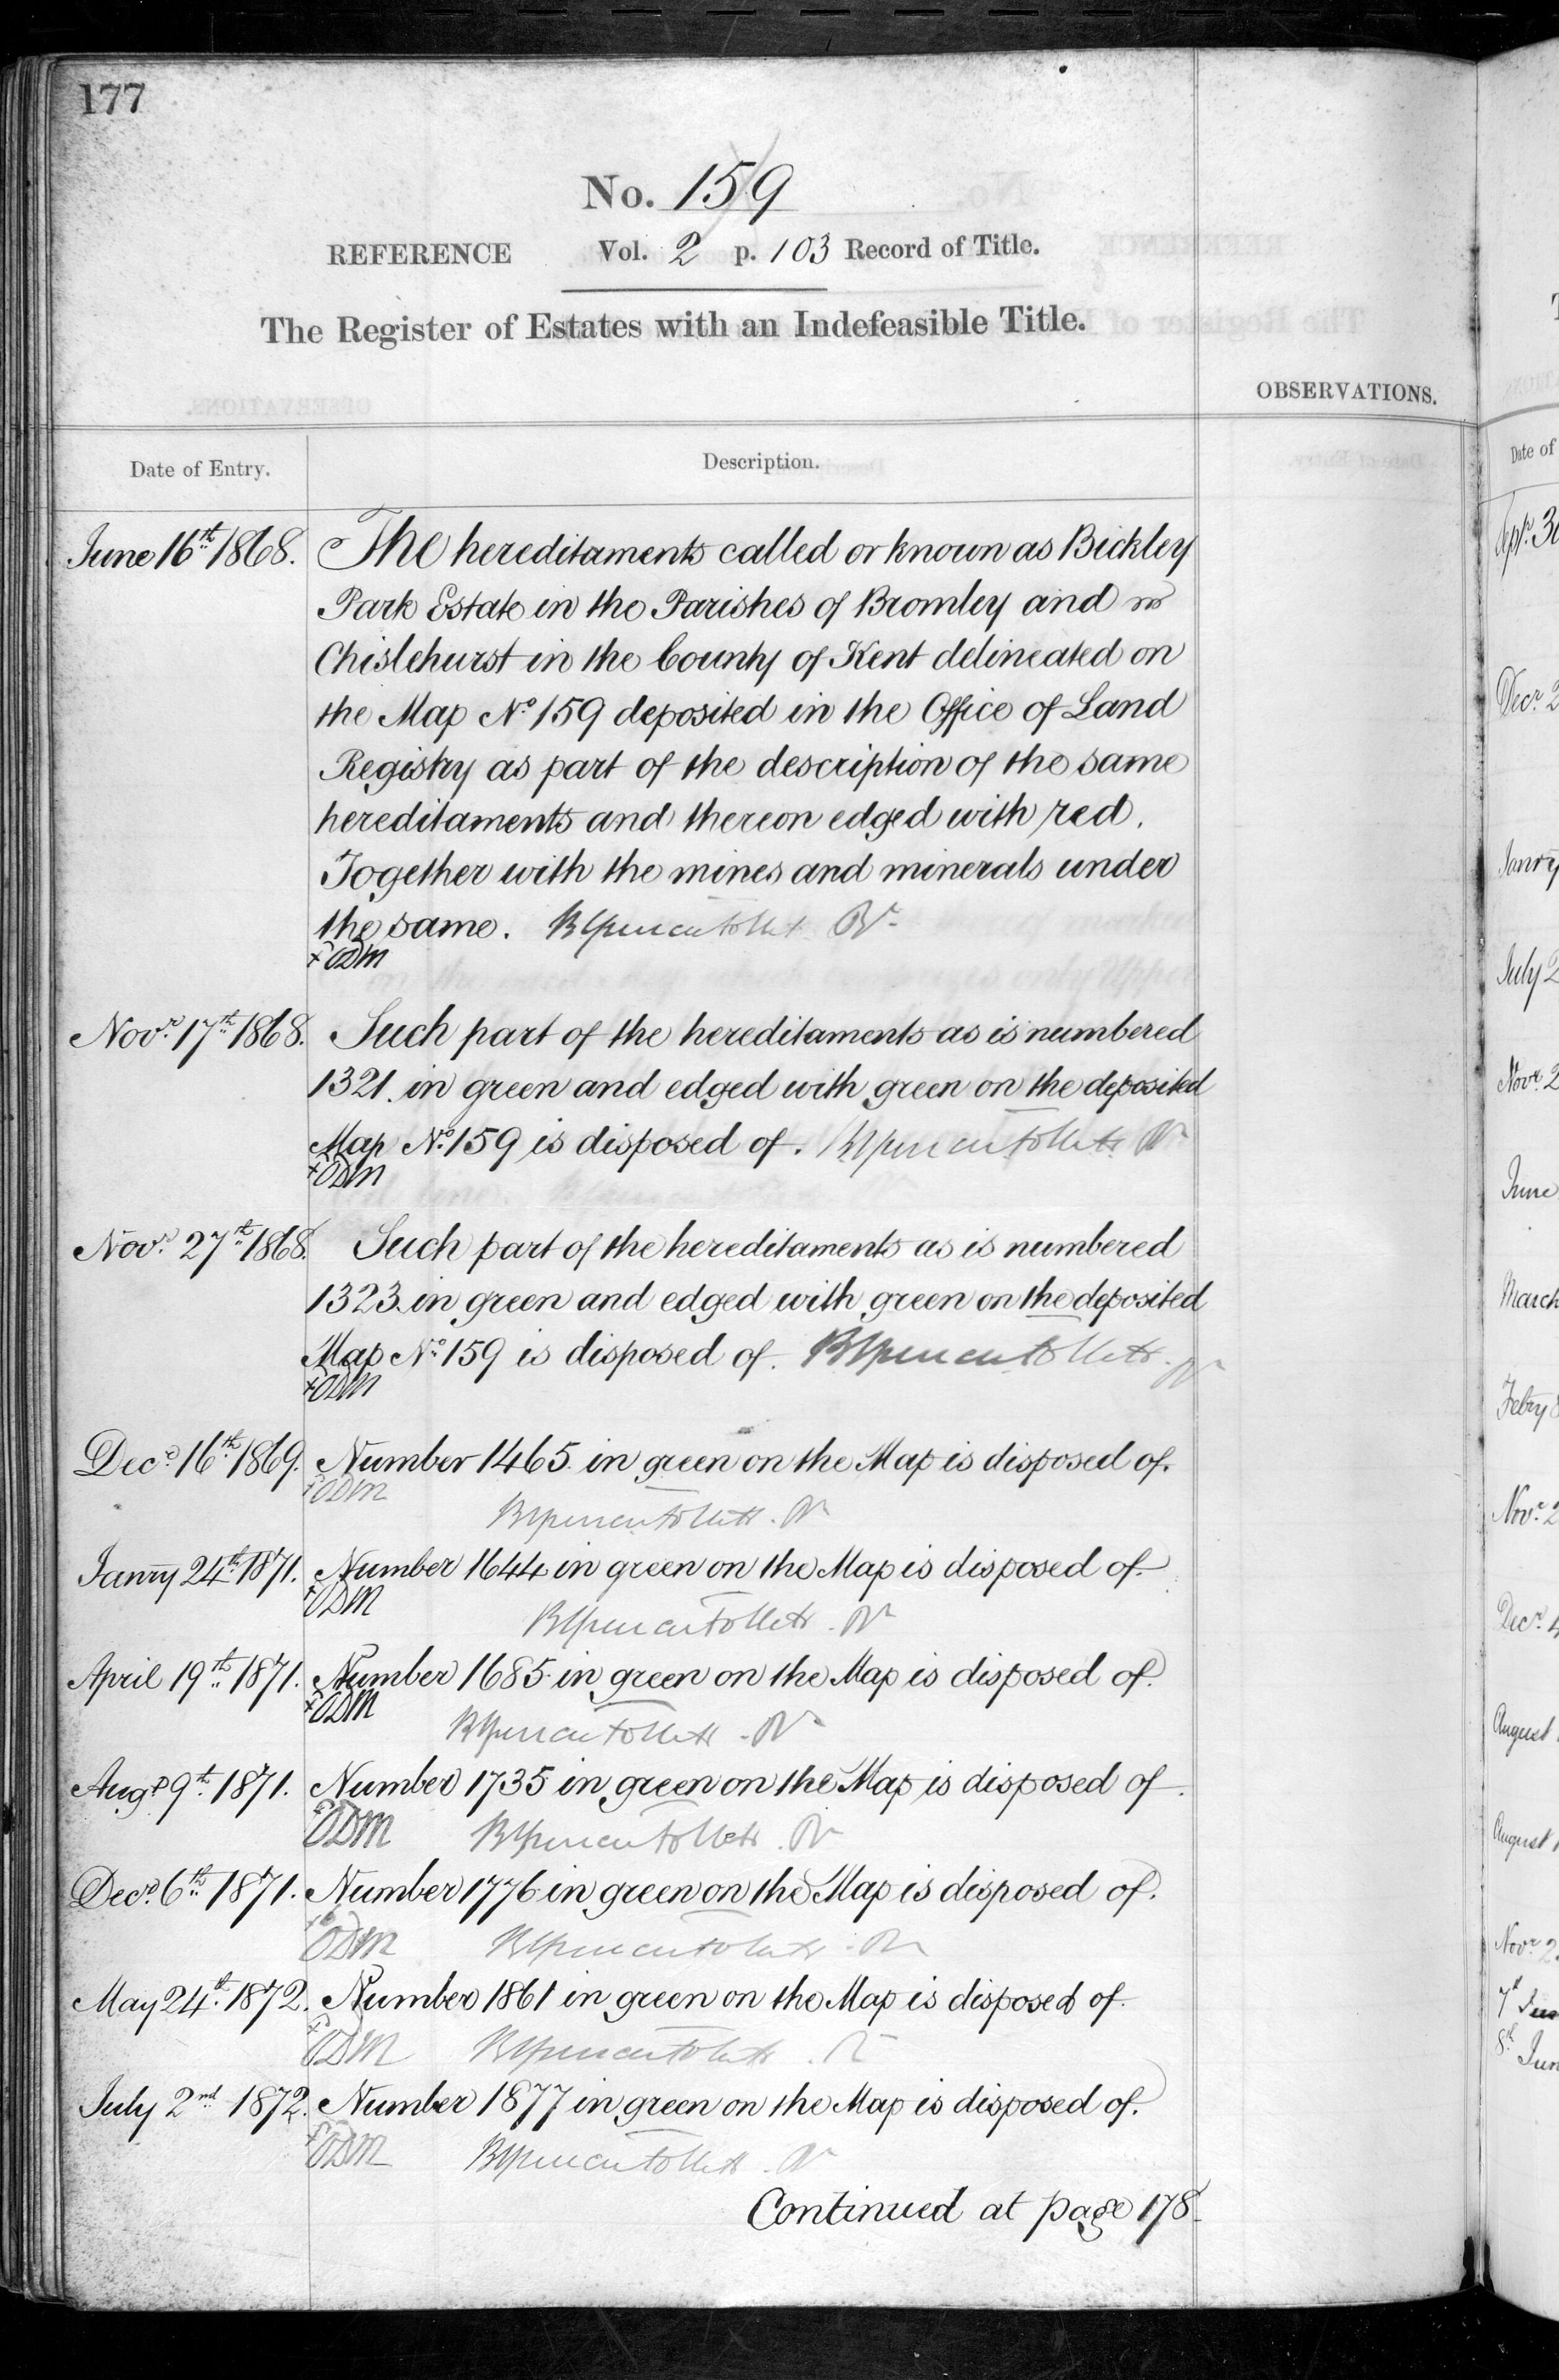 177
No. 159
REFERENCE Vol. 2 p. 103 Record of Title.
The Register of Estates with an Indefeasible Title.
OBSERVATIONS.
Date of Entry. Description.
June 16th 1868. The hereditaments called or known as Bickley
Park Estate in the Parishes of Bromley and
Chislehurst in the County of Kent delineated on
the Map No 159 deposited in the Office of Land
Registry as part of the description of the same
hereditaments and thereon edged with red.
Together with the mines and minerals under
the same.
+ ODM
Novr. 17th 1868. Such part of the hereditaments as is numbered
1321. in green and edged with green on the deposited
Map No 159 is disposed of.
+ ODM
Novr. 27th 1868. Such part of the hereditaments as is numbered
1323. in green and edged with green on the deposited
Map No 159 is disposed of.
+ ODM
Decr. 16th 1869. Number 1465 in green on the Map is disposed of.
+ ODM
Janry 24th 1871. Number 1644 in green on the Map is disposed of.
+ ODM
April 19th 1871. Number 1685 in green on the Map is disposed of.
+ ODM
Augt 9th 1871. Number 1735 in green on the Map is disposed of.
+ ODM
Decr. 6th 1871. Number 1776 in green on the Map is disposed of.
+ ODM
May 24th 1872. Number 1861 in green on the Map is disposed of.
+ ODM
July 2nd 1872. Number 1877 in green on the Map is disposed of.
+ ODM
Continued at page 178.
Date of
Sepr. 30
Decr. 2
Janry
July 2
Novr. 2
June
March
Febry 8
Novr. 2
Decr. 4
August
August
Novr. 2